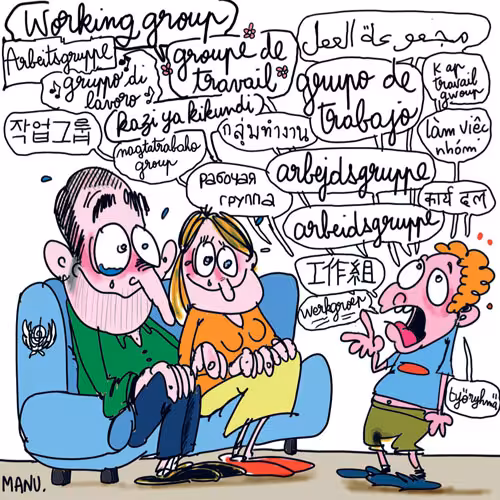 Working group
Arbeitsgruppe
gruppo di
lavoro
groupe de
travail
مجموعة العمل
grupo de
trabajo
K ap
travail
gwoup
작업그룹
kazi ya kikundi
nagtatrabaho
group
กลุ่มทำงาน
làm việc
nhóm
рабочая
группа
arbejdsgruppe
कार्य दल
arbeidsgruppe
工作組
werkgroep
työryhmä
MANU.